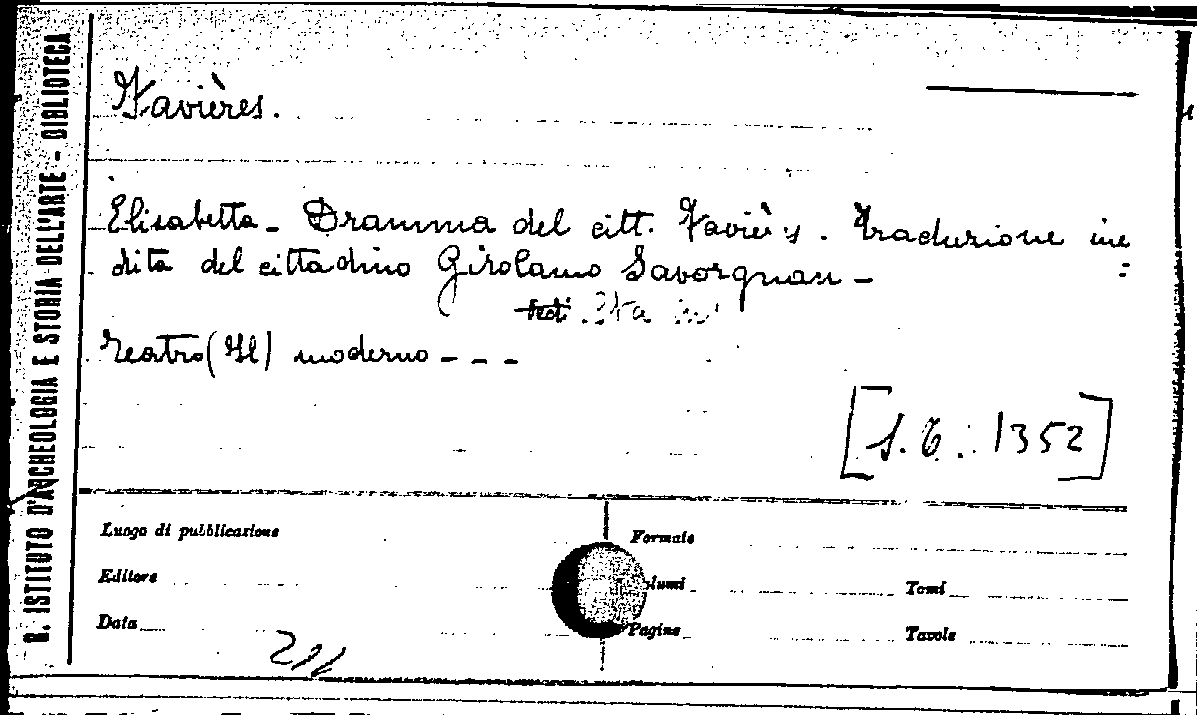 R. ISTITUTO D'ARCHEOLOGIA E STORIA DELL'ARTE - BIBLIOTECA
Favières.
Elisabetta - Dramma del citt. Favièrs. Traduzione ine
dita del cittadino Girolamo Savorgnan -
Teatro (Il) moderno - - -
[S.T. : 1352]
Luogo di pubblicazione
Formato
Editore
Tomi
Data
Pagine
Tavole